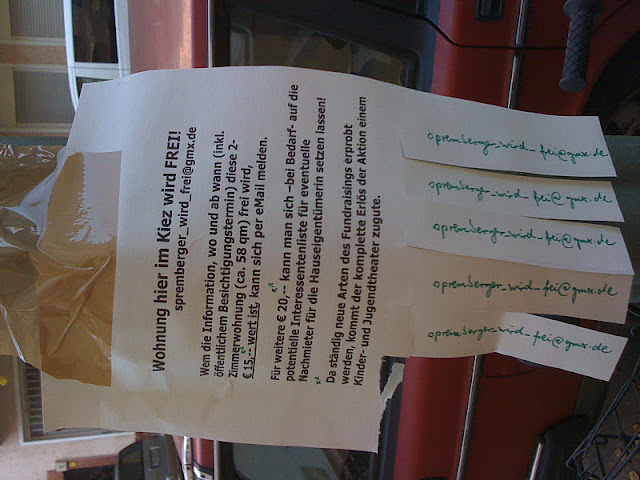 Wohnung hier im Kiez wird FREI!
spremberger_wird_frei@gmx.de
Wem die Information, wo und ab wann (inkl.
öffentlichem Besichtigungstermin) diese 2-
Zimmerwohnung (ca. 58 qm) frei wird,
€ 15,-- wert ist, kann sich per eMail melden.
Für weitere € 20,-- kann man sich –bei Bedarf- auf die
potentielle Interessentenliste für eventuelle
Nachmieter für die Hauseigentümerin setzen lassen!
Da ständig neue Arten des Fundraisings erprobt
werden, kommt der komplette Erlös der Aktion einem
Kinder- und Jugendtheater zugute.
spremberger_wird_frei@gmx.de
spremberger_wird_frei@gmx.de
spremberger_wird_frei@gmx.de
spremberger_wird_frei@gmx.de
spremberger_wird_frei@gmx.de